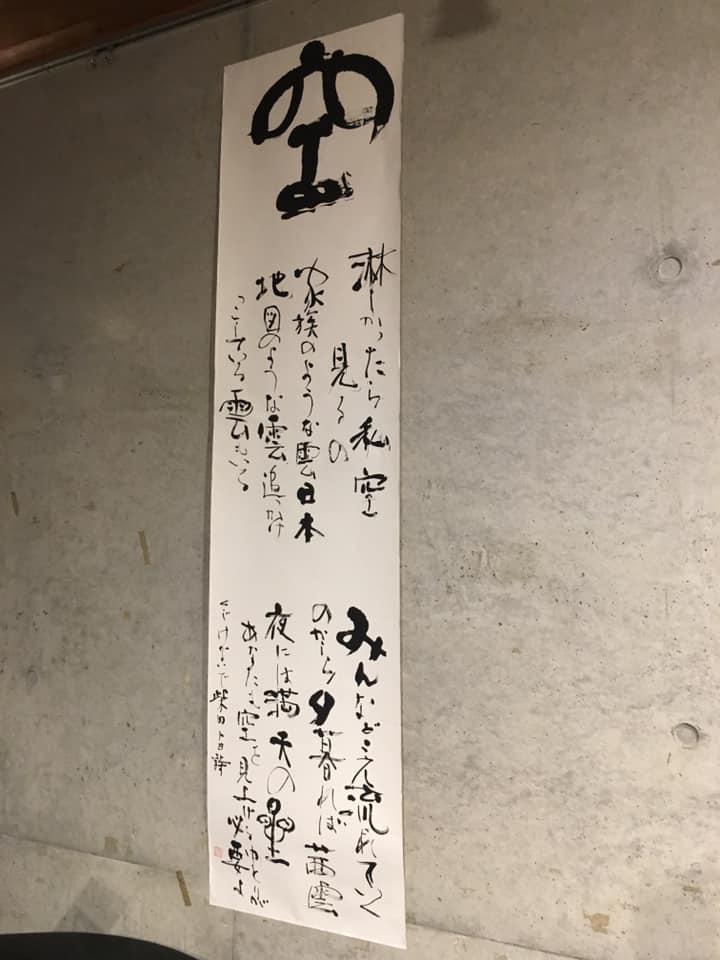 空
淋しかったら私空
見るの
家族のような雲日本
地図のような雲追っかけ
っこしている雲もいる
みんなどこへ流れていく
のかしら夕暮れば茜雲
夜には満天の星
あなたも空を見上げるゆとりが
必要よ
くじけないで柴田トヨ詩